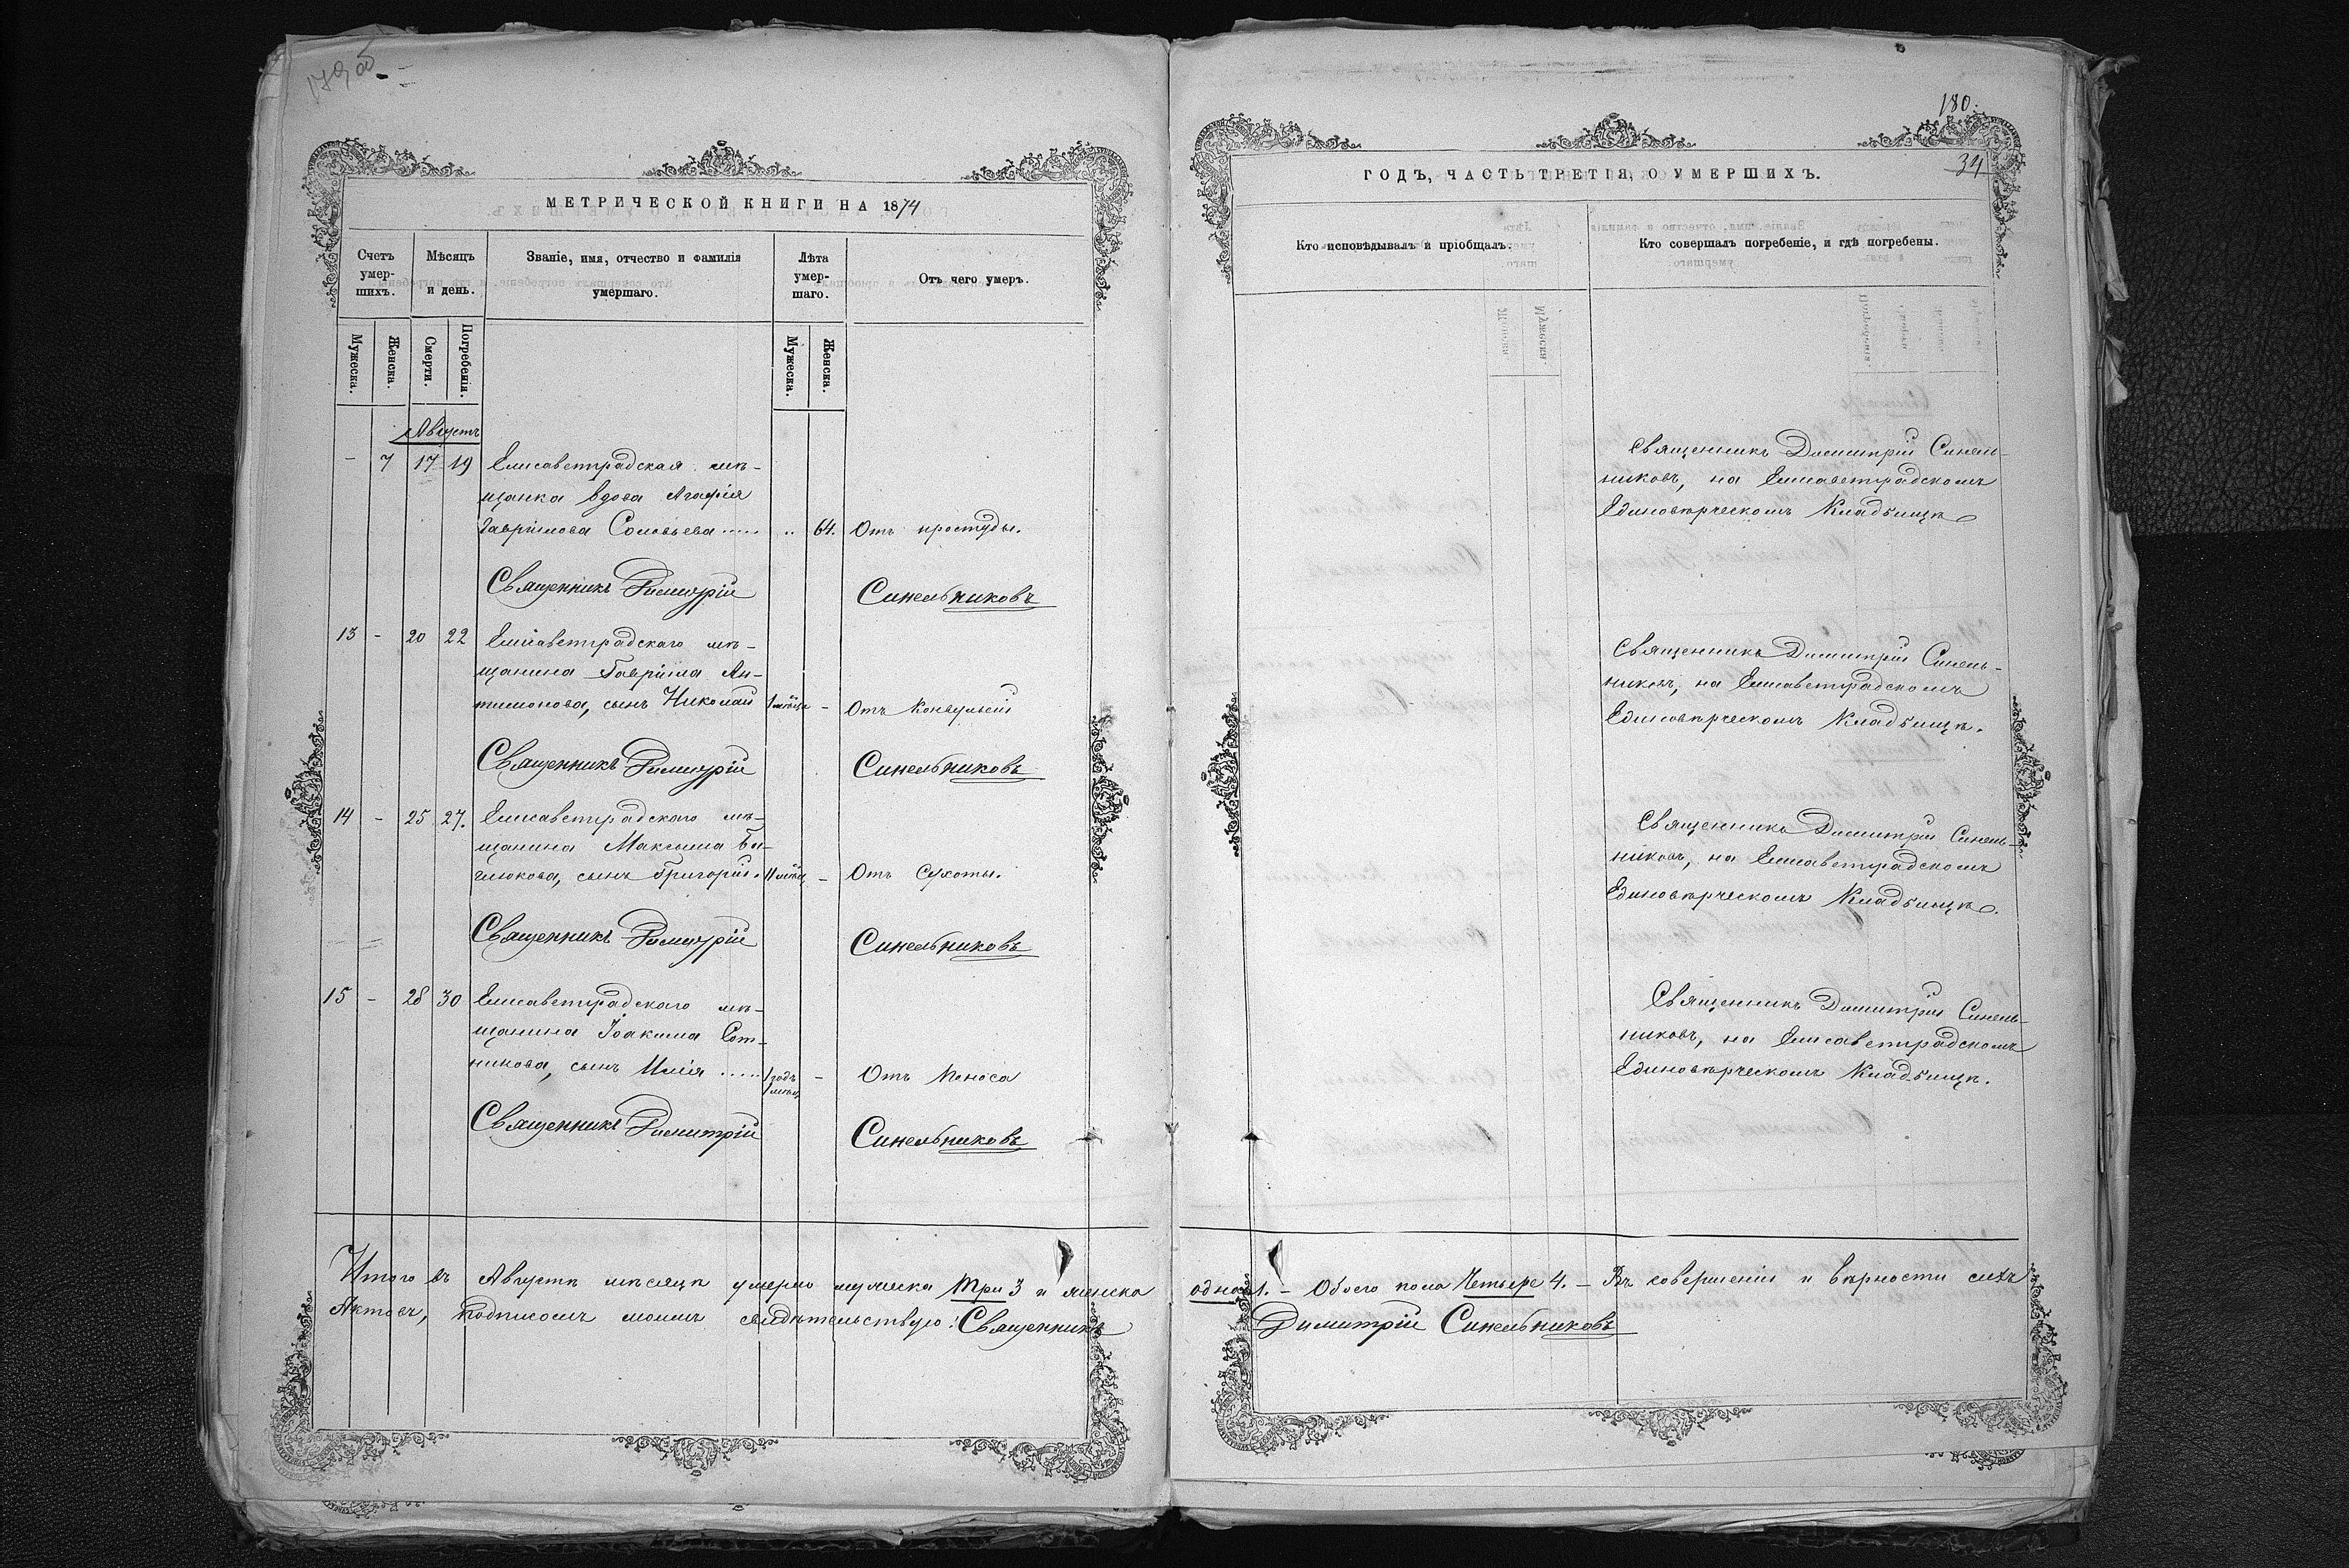 179 об
МЕТРИЧЕСКОЙ КНИГИ НА 1874
Счетъ умер-шихъ.
Мѣсяцъ и день.
Званіе, имя, отчество и фамилія умершаго.
Лѣта умер-шаго.
Отъ чего умеръ.
Мужеска.
Женска.
Смерти.
Погребенія.
Мужеска.
Женска.
Августъ
- 7 17 19 Елисаветградская мѣ-
щанка вдова Агафія
Гавріилова Соловьева ..... .. 64. Отъ простуды.
Священникъ Димитрій Синельниковъ
13 - 20 22 Елисаветградскаго мѣ-
щанина Гавріила Ан-
тимонова, сынъ Николай 1 мѣсяца - Отъ Конвульсій
Священникъ Димитрій Синельниковъ
14 - 25 27. Елисаветградскаго мѣ-
щанина Максима
сынъ Григорій. 11 мѣсяц. - Отъ Сухоты.
Священникъ Димитрій Синельниковъ
15 - 28 30 Елисаветградскаго мѣ-
щанина Іоакима Сот-
никова, сынъ Илія ..... 1 годъ - Отъ Поноса
1 мѣсяц.
Священникъ Димитрій Синельниковъ
Итого въ Августѣ мѣсяцѣ умерло мужеска три 3 и женска
Актовъ, подписомъ моимъ свидѣтельствую: Священникъ
180.
34
ГОДЪ, ЧАСТЬ ТРЕТІЯ, О УМЕРШИХЪ.
Кто исповѣдывалъ и пріобщалъ.
Кто совершалъ погребеніе, и гдѣ погребены.
Священникъ Димитрій Синель-
никовъ, на Елисаветградскомъ
Единовѣрческомъ Кладбищѣ
Священникъ Димитрій Синель-
никовъ, на Елисаветградскомъ
Единовѣрческомъ Кладбищѣ.
Священникъ Димитрій Синель-
никовъ, на Елисаветградскомъ
Единовѣрческомъ Кладбищѣ.
Священникъ Димитрій Синель-
никовъ, на Елисаветградскомъ
Единовѣрческомъ Кладбищѣ.
одна 1. - Обоего пола Четыре 4. - Въ совершеніи и вѣрности сихъ
Димитрій Синельниковъ